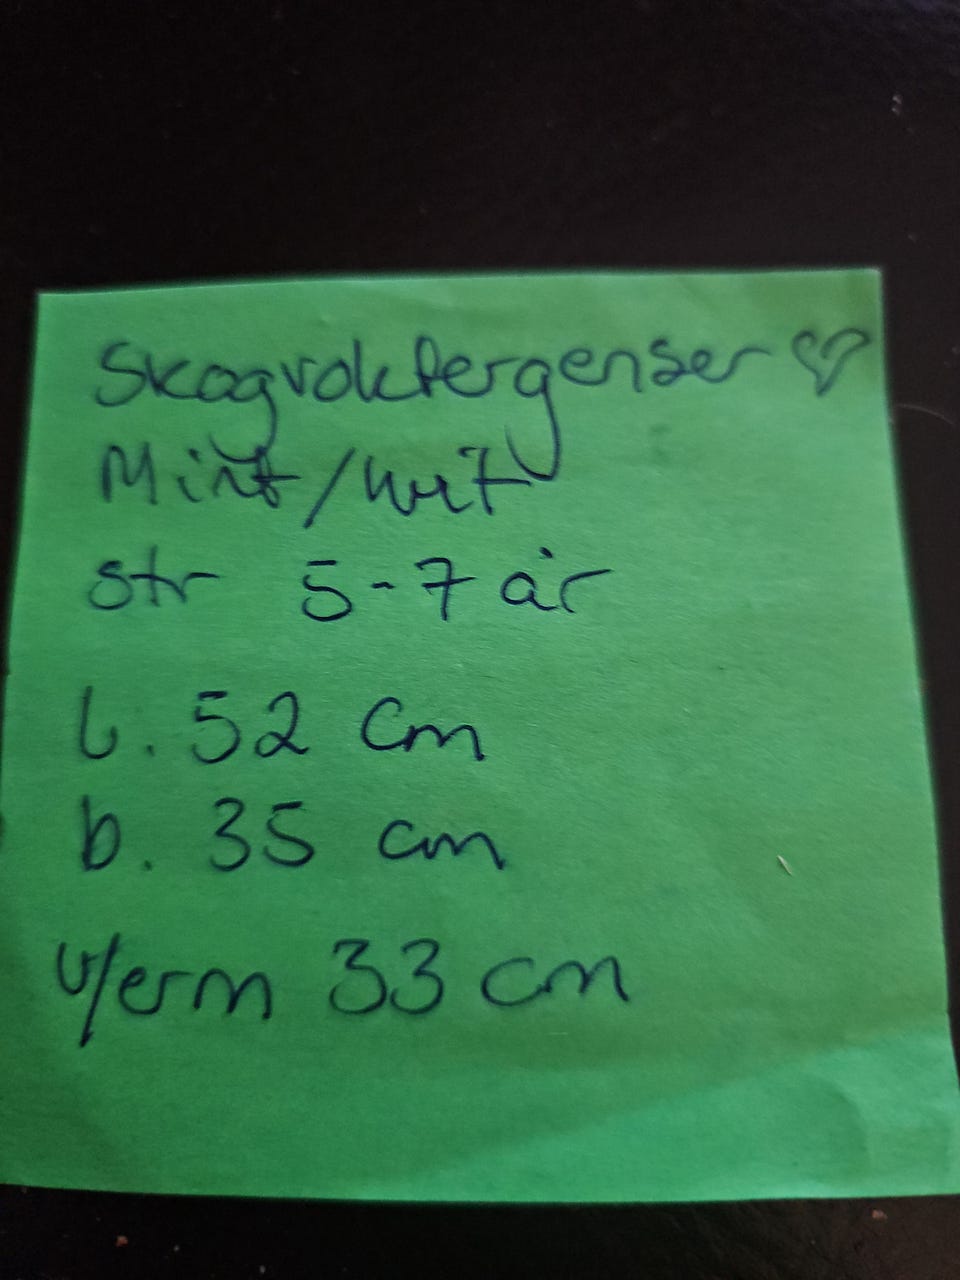 Skogvoktergenser ♡
Mint/hvit
str 5-7 år
l. 52 cm
b. 35 cm
u/erm 33 cm